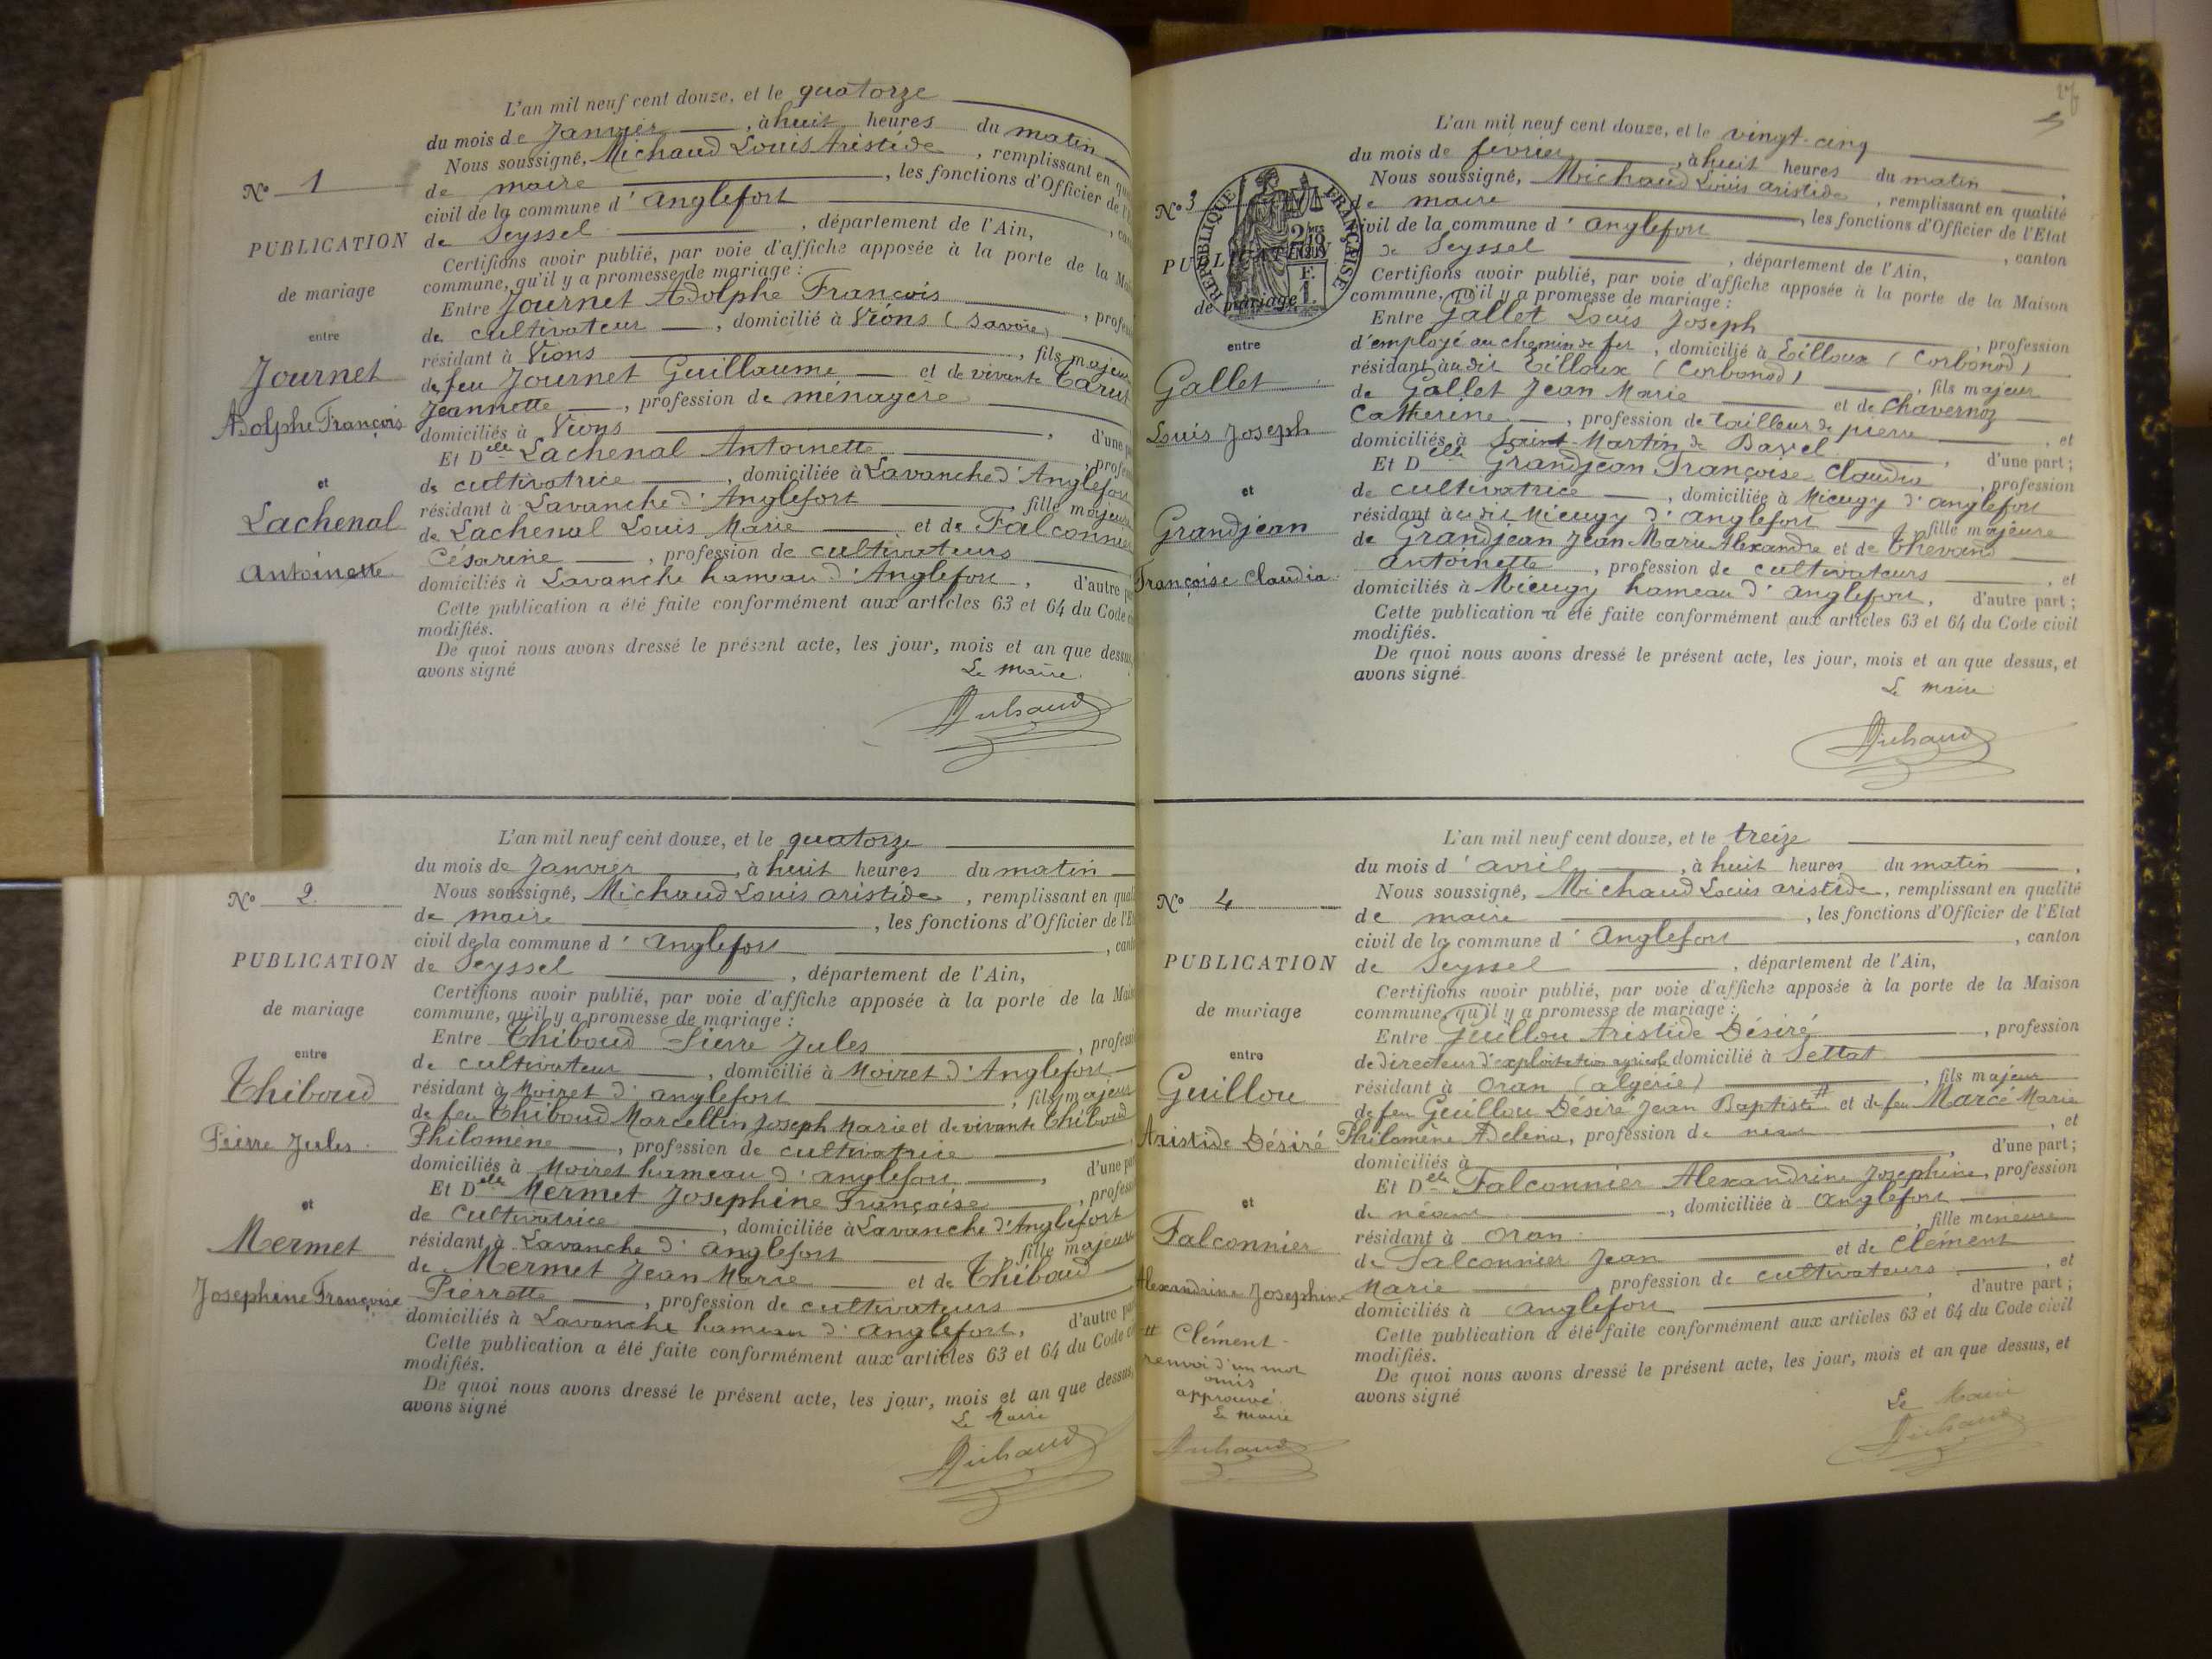 L'an mil neuf cent douze, et le quatorze
du mois de Janvier, à huit heures du matin
Nous soussigné, Michaud Louis Aristide, remplissant en
N° 1
de maire, les fonctions d'Officier de
civil de la commune d'Anglefort
PUBLICATION
de Seyssel, département de l'Ain,
Certifions avoir publié, par voie d'affiche apposée à la porte de la
de mariage
commune, qu'il y a promesse de mariage :
Entre Journet Adolphe François
entre
de cultivateur, domicilié à Vions (Savoie)
Journet
résidant à Vions, fils majeur
de feu Journet Guillaume et de vivante Carut
Adolphe François
Jeannette, profession de ménagère
domiciliés à Vions, d'une
Et Delle Lachenal Antoinette
et
de cultivatrice, domiciliée à Lavanche d'Anglefort
Lachenal
résidant à Lavanche d'Anglefort fille majeure
de Lachenal Louis Marie et de Falconnier
Antoinette
Césarine, profession de cultivateurs
domiciliés à Lavanche hameau d'Anglefort, d'autre
Cette publication a été faite conformément aux articles 63 et 64 du Code
modifiés.
De quoi nous avons dressé le présent acte, les jour, mois et an que dessus,
avons signé
Le Maire.
Michaud
L'an mil neuf cent douze, et le quatorze
du mois de Janvier, à huit heures du matin
N° 2
Nous soussigné, Michaud Louis Aristide, remplissant en
de maire, les fonctions d'Officier de
civil de la commune d'Anglefort
PUBLICATION
de Seyssel, département de l'Ain,
Certifions avoir publié, par voie d'affiche apposée à la porte de la
de mariage
commune, qu'il y a promesse de mariage :
Entre Thiboud Pierre Jules
entre
de cultivateur, domicilié à Moiret d'Anglefort
Thiboud
résidant à Moiret d'Anglefort, fils majeur
de feu Thiboud Marcellin Joseph Marie et de vivante Thiboud
Pierre Jules
Philomène, profession de cultivatrice
domiciliés à Moiret hameau d'Anglefort, d'une
et
Et Delle Mermet Josephine Françoise
de cultivatrice, domiciliée à Lavanche d'Anglefort
Mermet
résidant à Lavanche d'Anglefort fille majeure
de Mermet Jean Marie et de Thiboud
Josephine Françoise
Pierrette, profession de cultivateurs
domiciliés à Lavanche hameau d'Anglefort, d'autre
Cette publication a été faite conformément aux articles 63 et 64 du Code
modifiés.
De quoi nous avons dressé le présent acte, les jour, mois et an que dessus,
avons signé
Le Maire
Michaud
L'an mil neuf cent douze, et le vingt-cinq
du mois de février, à huit heures du matin
Nous soussigné, Michaud Louis Aristide, remplissant en qualité
N° 3
RÉPUBLIQUE FRANÇAISE
de maire, les fonctions d'Officier de l'Etat
civil de la commune d'Anglefort, canton
PUBLICATION
de Seyssel, département de l'Ain,
Certifions avoir publié, par voie d'affiche apposée à la porte de la Maison
de mariage
commune, qu'il y a promesse de mariage :
Entre Gallet Louis Joseph, profession
entre
d'employé au chemin de fer, domicilié à Eilloux (Corbonod)
Gallet
résidant audit Eilloux (Corbonod), fils majeur
de Gallet Jean Marie et de Chavernoz
Louis Joseph
Catherine, profession de tailleur de pierre, et
domiciliés à Saint-Martin de Bavel, d'une part ;
Et Delle Grandjean Françoise Claudia, profession
et
de cultivatrice, domiciliée à Mieugy d'Anglefort
Grandjean
résidant audit Mieugy d'Anglefort, fille majeure
de Grandjean Jean Marie Alexandre et de Thevand
Françoise Claudia
Antoinette, profession de cultivateurs, et
domiciliés à Mieugy hameau d'Anglefort, d'autre part ;
Cette publication a été faite conformément aux articles 63 et 64 du Code civil
modifiés.
De quoi nous avons dressé le présent acte, les jour, mois et an que dessus, et
avons signé
Le maire
Michaud
L'an mil neuf cent douze, et le treize
du mois d'avril, à huit heures du matin,
N° 4
Nous soussigné, Michaud Louis Aristide, remplissant en qualité
de maire, les fonctions d'Officier de l'Etat
civil de la commune d'Anglefort, canton
PUBLICATION
de Seyssel, département de l'Ain,
Certifions avoir publié, par voie d'affiche apposée à la porte de la Maison
de mariage
commune, qu'il y a promesse de mariage :
Entre Guillou Aristide Désiré, profession
entre
de directeur d'exploitation agricole domicilié à Settat
Guillou
résidant à Oran (Algérie), fils majeur
de feu Guillou Désiré Jean Baptiste # et de feu Marcé Marie
Aristide Désiré
Philomène Adelina, profession de néant, et
domiciliés à d'une part ;
Et Delle Falconnier Alexandrine Josephine, profession
et
de néant, domiciliée à Anglefort
Falconnier
résidant à Oran, fille mineure
de Falconnier Jean et de Clément
Alexandrine Josephine
Marie, profession de cultivateurs, et
domiciliés à Anglefort, d'autre part ;
# Clément
renvoi d'un mot
omis
approuvé.
Le Maire
Michaud
Cette publication a été faite conformément aux articles 63 et 64 du Code civil
modifiés.
De quoi nous avons dressé le présent acte, les jour, mois et an que dessus, et
avons signé
Le Maire
Michaud